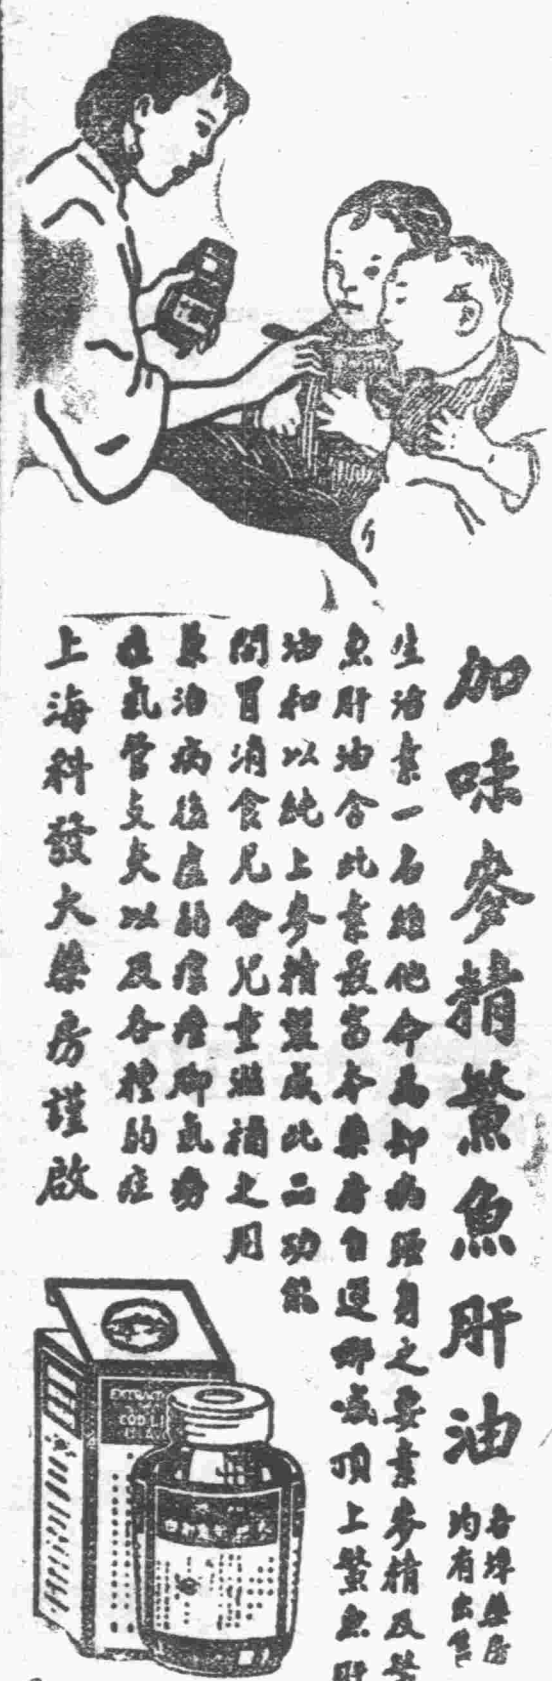 加味麥精鱉魚肝油
各埠藥房
均有出售
生活素一名維他命為却病强身之要素麥精及鱉
魚肝油含此素最富本藥房自運哪威頂上鱉魚肝
油和以純上麥精製成此二功能
開胃消食兄合兒童滋補之用
兼治病後虛弱瘰癧脚氣癆
症氣管支炎以及各種弱症
上海科發大藥房謹啟
EXTRACT
COD LI